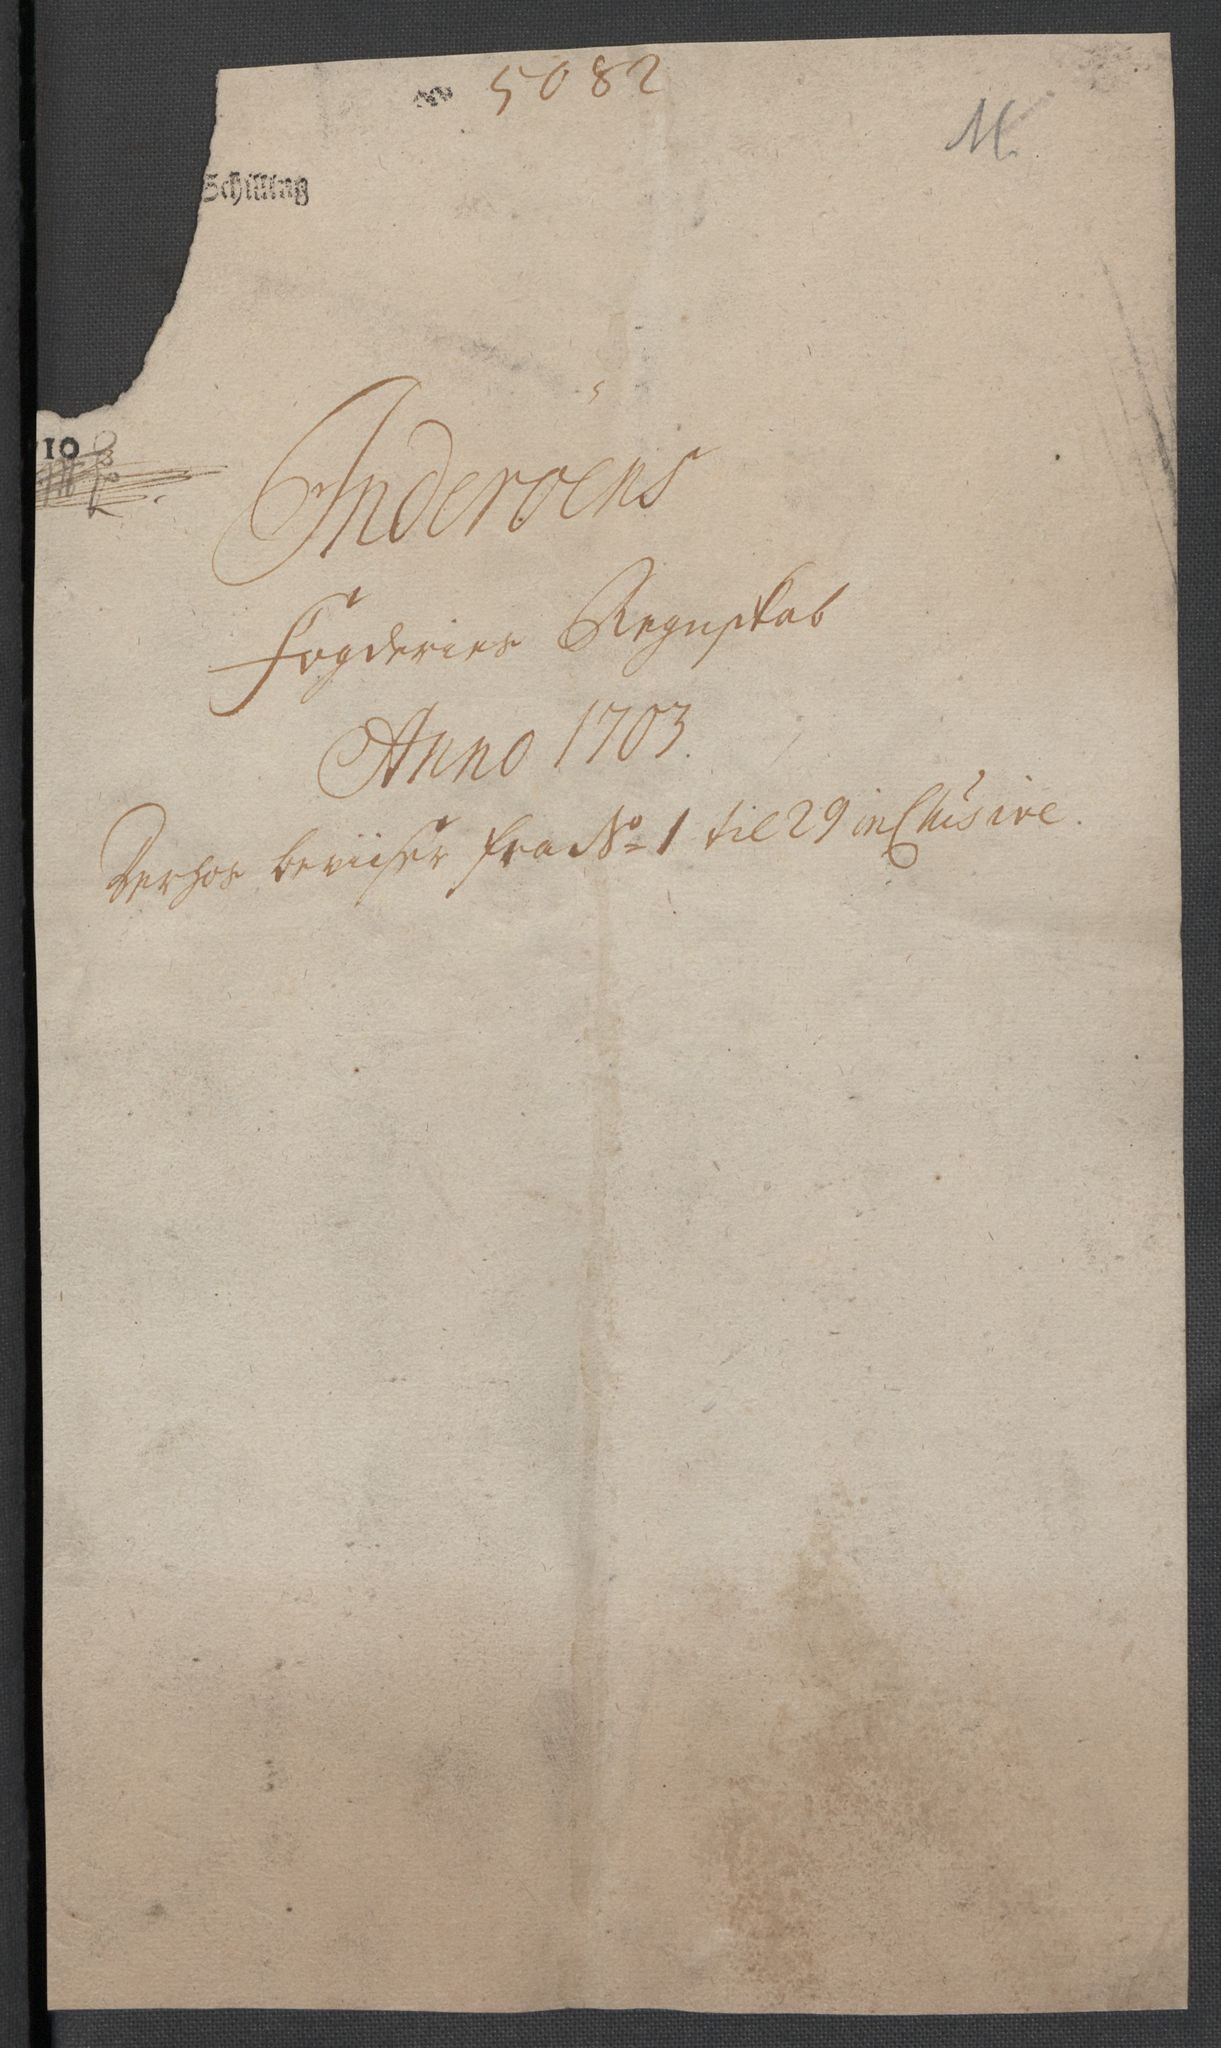 5082
M.
Schilling
10
Inderöens
Fogderies Regnskab
Anno 1703.
Derhos beviiser fra No 1 til 29 inClusive.